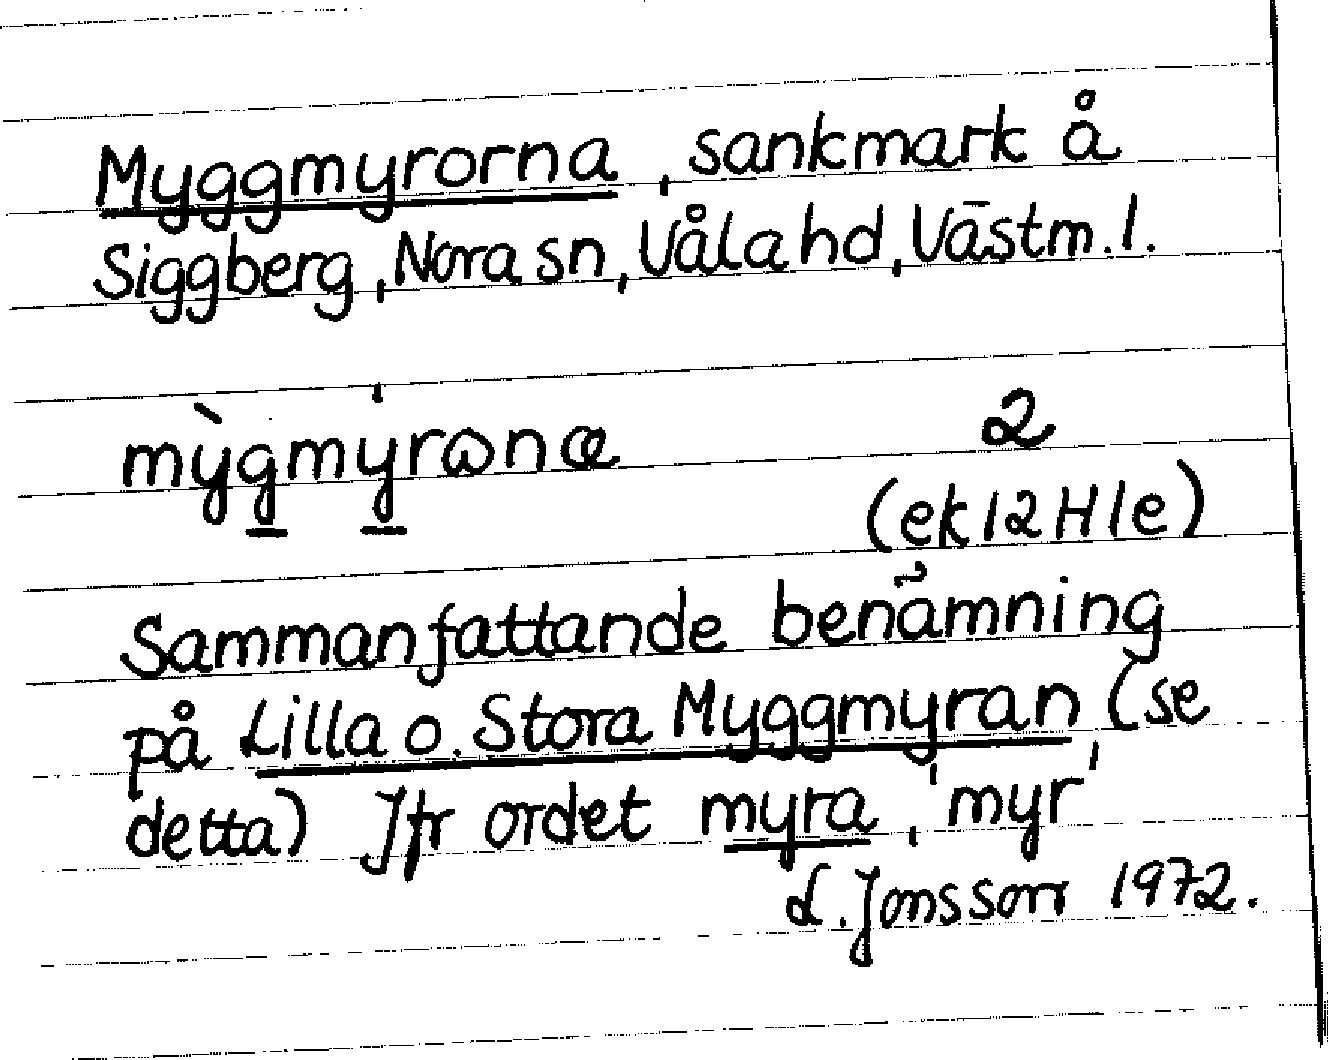 Myggmyrorna, sankmark å
Siggberg, Nora sn, Våla hd, Västm. l.
mỳgmyrωnα 2
(ek 12 H 1 e)
Sammanfattande benämning
på Lilla o. Stora Myggmyran (se
detta) Jfr ordet myra, 'myr'
L. Jonsson 1972.